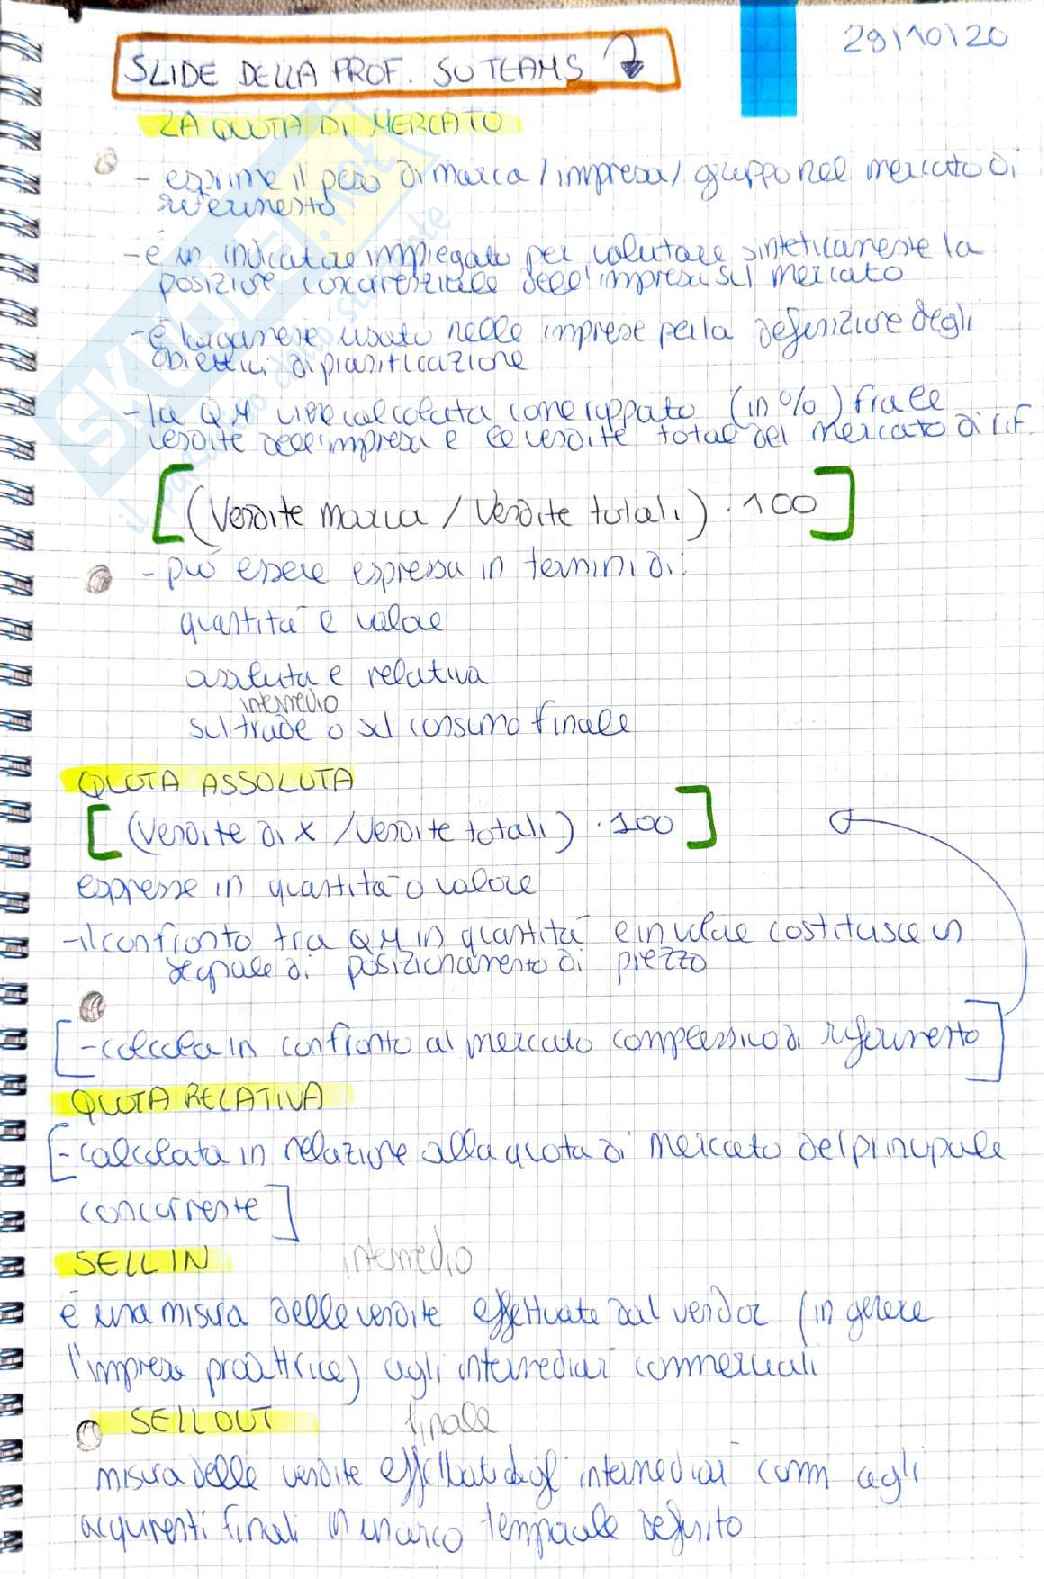 29/10/20
SLIDE DELLA PROF. SU TEAMS
LA QUOTA DI MERCATO
- esprime il peso di marca / impresa / gruppo nel mercato di
riferimento
- è un indicatore impiegato per valutare sinteticamente la
posizione concorrenziale dell'impresa sul mercato
- è largamente usato nelle imprese per la definizione degli
obiettivi di pianificazione
- la QM viene calcolata come rapporto (in %) fra le
vendite dell'impresa e le vendite totali del mercato di rif.
[(Vendite marca / Vendite totali) · 100]
- può essere espressa in termini di:
quantità e valore
assoluta e relativa
intermedio
sul trade o sul consumo finale
QUOTA ASSOLUTA
[(Vendite di x / Vendite totali) · 100]
espresse in quantità o valore
- il confronto tra QM in quantità e in valore costituisce un
segnale di posizionamento di prezzo
[- calcolata in confronto al mercato complessivo di riferimento]
QUOTA RELATIVA
[- calcolata in relazione alla quota di mercato del principale
concorrente]
SELL IN intermedio
è una misura delle vendite effettuate dal vendor (in genere
l'impresa produttrice) agli intermediari commerciali
SELL OUT finale
misura delle vendite effettuate dagli intermediari comm agli
acquirenti finali in un arco temporale definito
SKUOLA.net
il paradiso dello studente